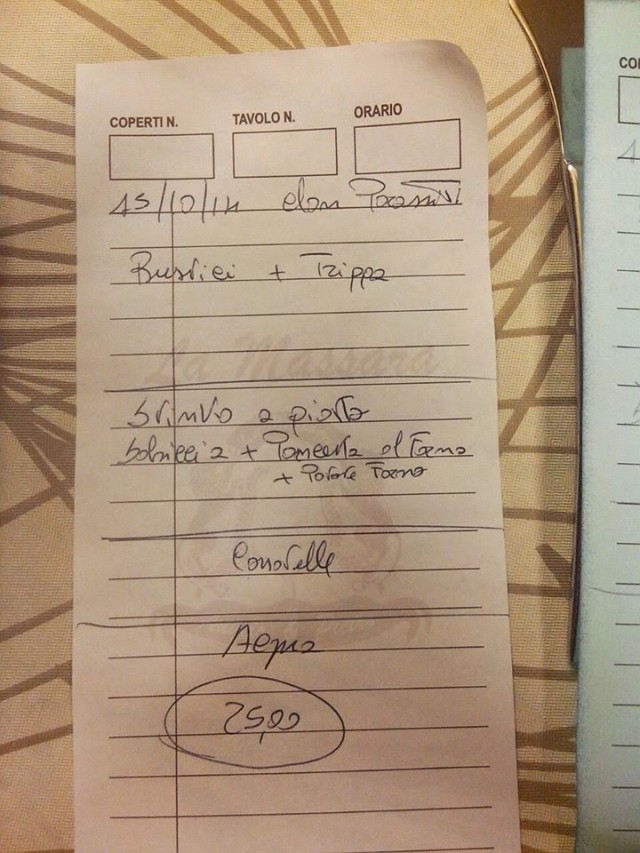 COPERTI N. TAVOLO N. ORARIO
15/10/14
Rustici + Trippa
La Massara
Stinco a pirolo
Salsiccia + Pancetta al Forno
+ Patate Forno
Cannatelle
Acqua
25,00
CO